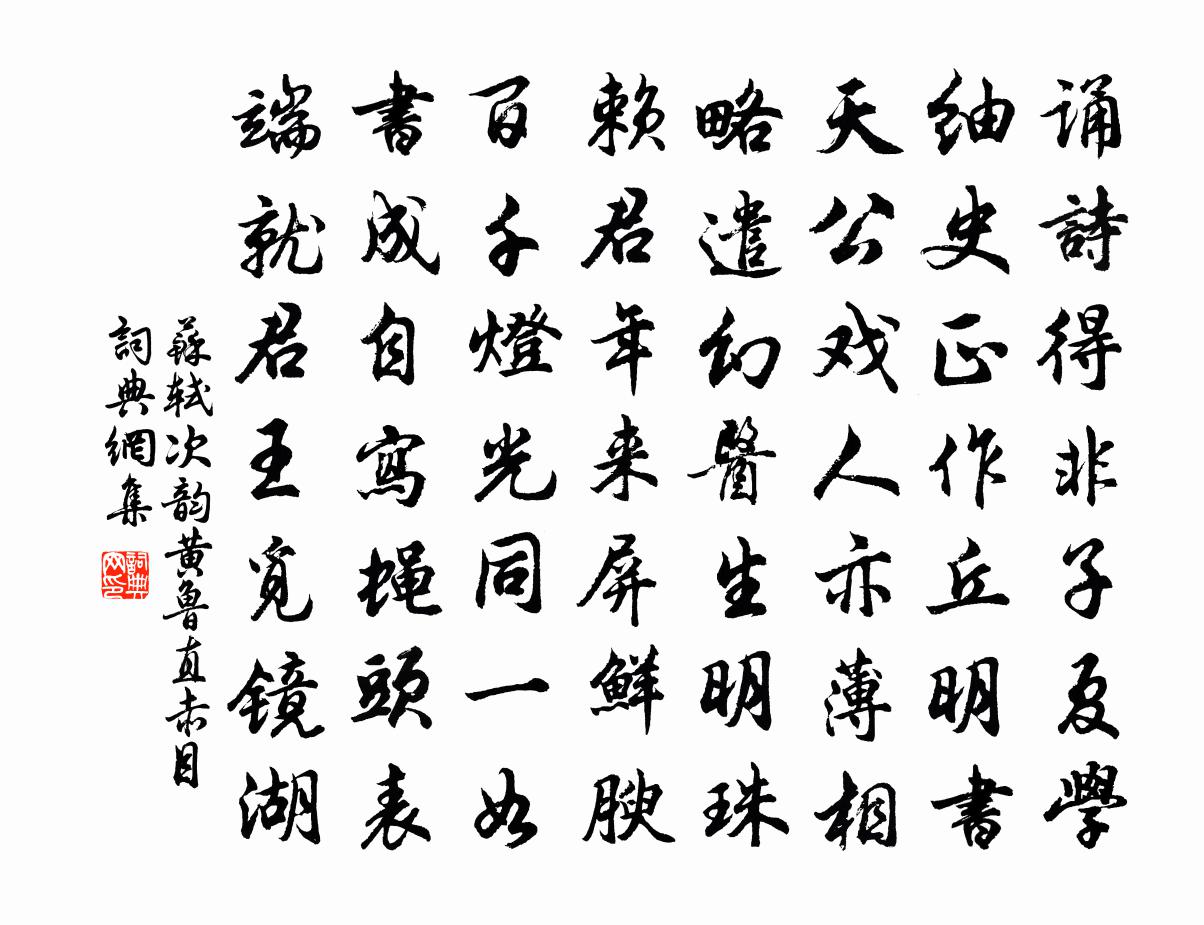 诵詩得非子夏學
紬史正作丘明書
天公戏人亦薄相
略遣幻翳生明珠
赖君年来屏鮮腴
百千燈光同一如
書成自寫蝇頭表
端就君王覓镜湖
蘇轼次韵黄魯直赤目
詞典網集
詞典网印